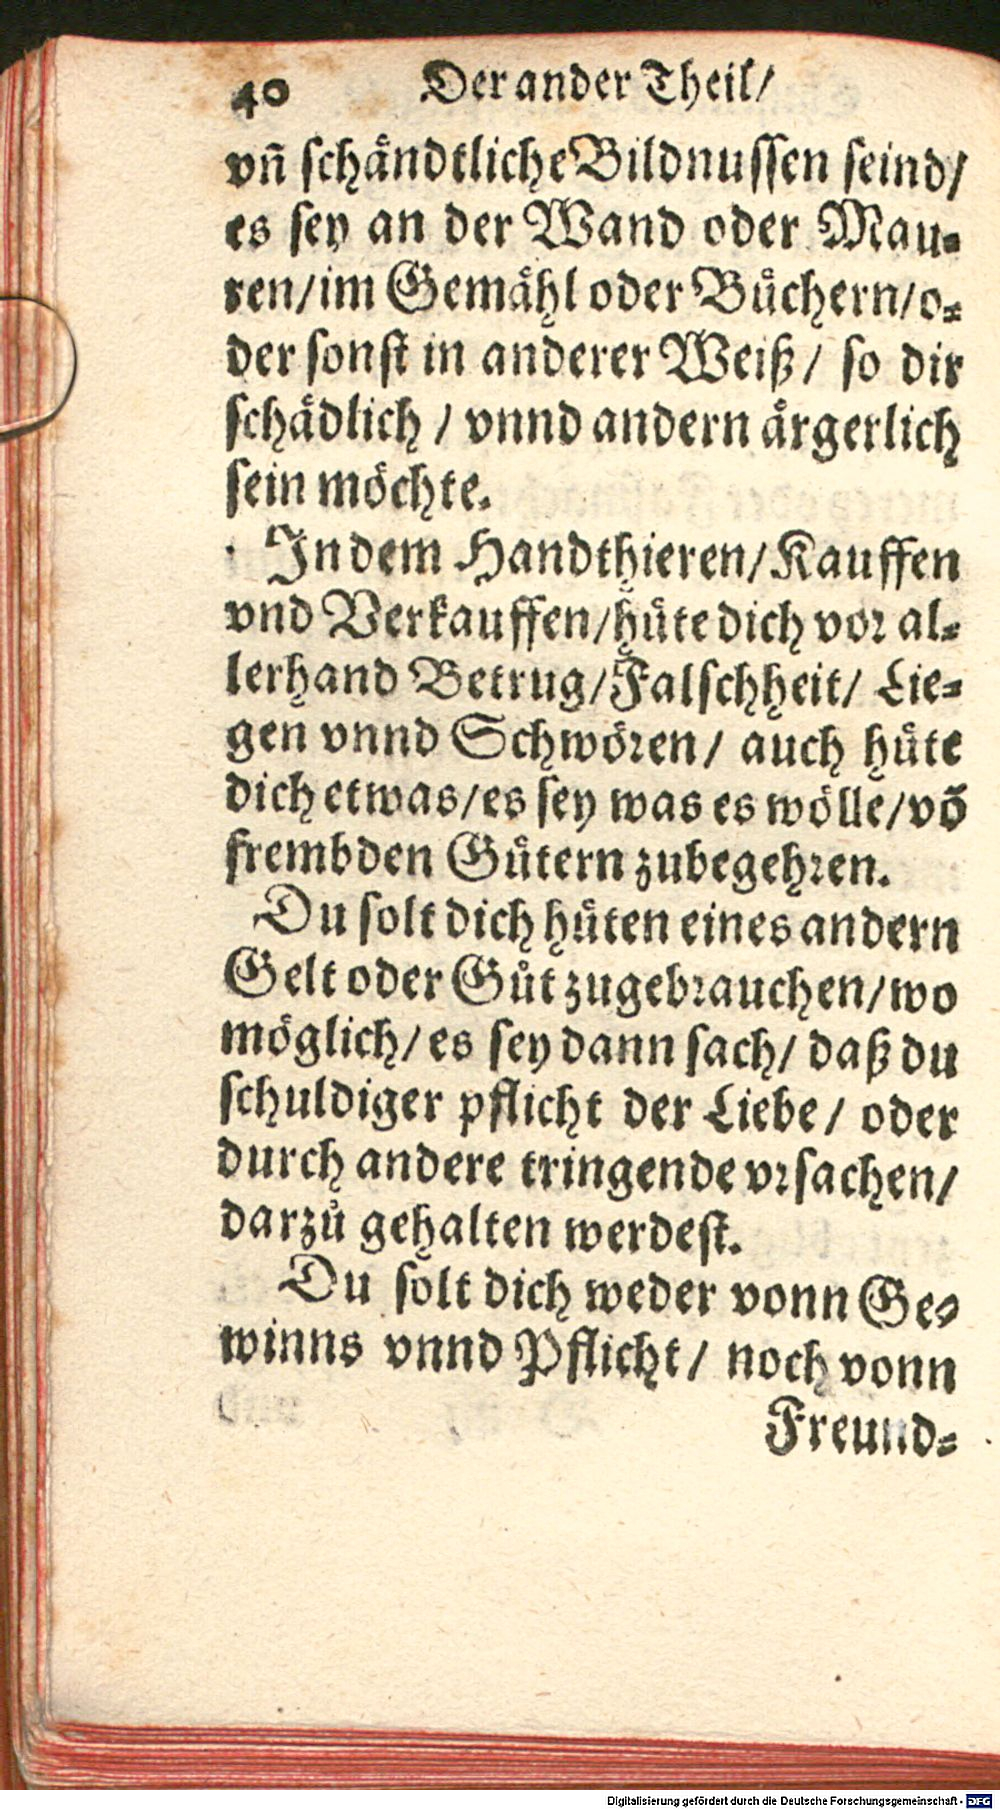 40 Der ander Theil/
vñ schaͤndtliche Bildnussen seind/
es sey an der Wand oder Mau-
ren/im Gemaͤhl oder Buͤchern/o-
der sonst in anderer Weiß/ so dir
schaͤdlich / vnnd andern aͤrgerlich
sein moͤchte.
In dem Handthieren/Kauffen
vnd Verkauffen/huͤte dich vor al-
lerhand Betrug/Falschheit/ Lie-
gen vnnd Schwoͤren/ auch huͤte
dich etwas/es sey was es woͤlle/võ
frembden Guͤtern zubegehren.
Du solt dich huͤten eines andern
Gelt oder Guͦt zugebrauchen/wo
moͤglich/es sey dann sach/ daß du
schuldiger pflicht der Liebe/ oder
durch andere tringende vrsachen/
darzuͦ gehalten werdest.
Du solt dich weder vonn Ge-
winns vnnd Pflicht/ noch vonn
Freund-
Digitalisierung gefördert durch die Deutsche Forschungsgemeinschaft - DFG